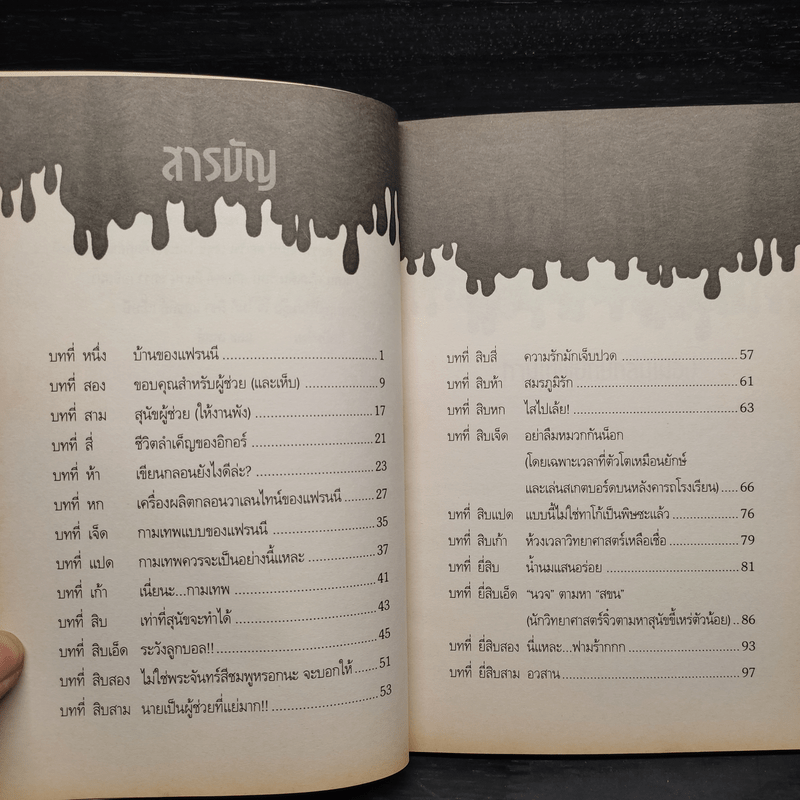 สารบัญ
บทที่ หนึ่ง บ้านของแฟรนนี ........ 1
บทที่ สอง ขอบคุณสำหรับผู้ช่วย (และเห็บ) ........ 9
บทที่ สาม สุนัขผู้ช่วย (ให้งานพัง) ........ 17
บทที่ สี่ ชีวิตลำเค็ญของอิกอร์ ........ 21
บทที่ ห้า เขียนกลอนยังไงดีล่ะ? ........ 23
บทที่ หก เครื่องผลิตกลอนวาเลนไทน์ของแฟรนนี ........ 27
บทที่ เจ็ด กามเทพแบบของแฟรนนี ........ 35
บทที่ แปด กามเทพควรจะเป็นอย่างนี้แหละ ........ 37
บทที่ เก้า เนี่ยนะ...กามเทพ ........ 41
บทที่ สิบ เท่าที่สุนัขจะทำได้ ........ 43
บทที่ สิบเอ็ด ระวังลูกบอล!! ........ 45
บทที่ สิบสอง ไม่ใช่พระจันทร์สีชมพูหรอกนะ จะบอกให้ ........ 51
บทที่ สิบสาม นายเป็นผู้ช่วยที่แย่มาก!! ........ 53
บทที่ สิบสี่ ความรักมักเจ็บปวด ........ 57
บทที่ สิบห้า สมรภูมิรัก ........ 61
บทที่ สิบหก ไสไปเล้ย! ........ 63
บทที่ สิบเจ็ด อย่าลืมหมวกกันน็อก
(โดยเฉพาะเวลาที่ตัวโตเหมือนยักษ์
และเล่นสเกตบอร์ดบนหลังคารถโรงเรียน) ..... 66
บทที่ สิบแปด แบบนี้ไม่ใช่ทาโก้เป็นพิษซะแล้ว ........ 76
บทที่ สิบเก้า ห้วงเวลาวิทยาศาสตร์เหลือเชื่อ ........ 79
บทที่ ยี่สิบ น้ำนมแสนอร่อย ........ 81
บทที่ ยี่สิบเอ็ด “นวจ” ตามหา “สขน”
(นักวิทยาศาสตร์จิ๋วตามหาสุนัขขี้เหร่ตัวน้อย) .. 86
บทที่ ยี่สิบสอง นี่แหละ...ฟามร้ากกก ........ 93
บทที่ ยี่สิบสาม อวสาน ........ 97